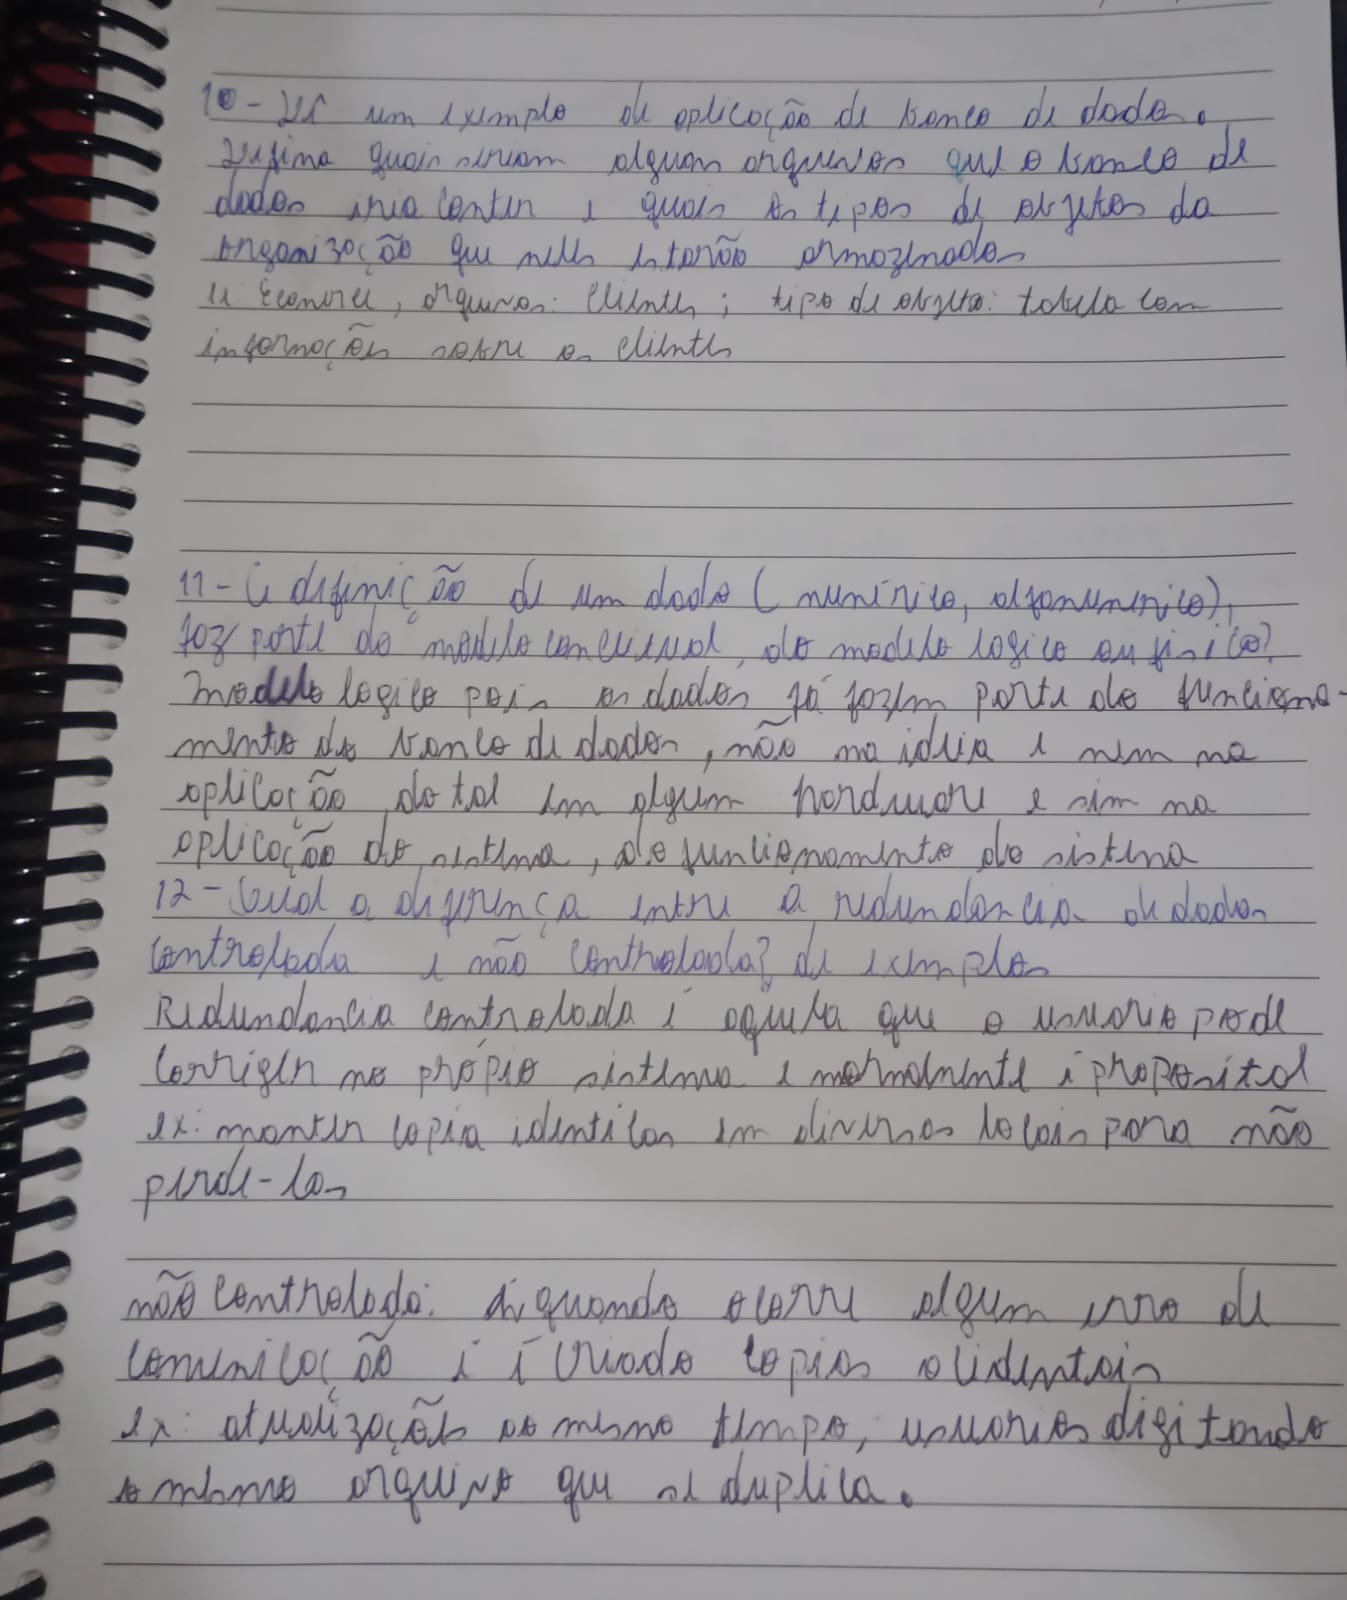 10- Dê um exemplo de aplicação de banco de dado.
Defina quais seriam alguns arquivos que o banco de
dados iria conter e quais os tipos de objetos da
organização que neles estarão armazenados
arquivos: clientes; tipo de objeto: tabela com
informações sobre os clientes
11- A definição de um dado (numérico, alfanumerico),
faz parte do modelo conceitual, do modelo logico ou fisico?
modelo logico pois os dados já fazem parte do funciona-
mento do banco de dados, não na ideia e nem na
aplicação do tal em algum hardware e sim na
aplicação do sistema, do funcionamento do sistema
12- Qual a diferença entre a redundancia de dados
controlada e não controlada? de exemplos
Redundancia controlada é aquela que o usuario pode
corrigir no própio sistema e normalmente é proposital
ex: manter copia identicas em diversos locais para não
perde-los
não controlado: é quando ocorre algum erro de
comunicação e é criado copias acidentais
ex: atualizações ao mesmo tempo, usuarios digitando
o mesmo arquivo que se duplica.